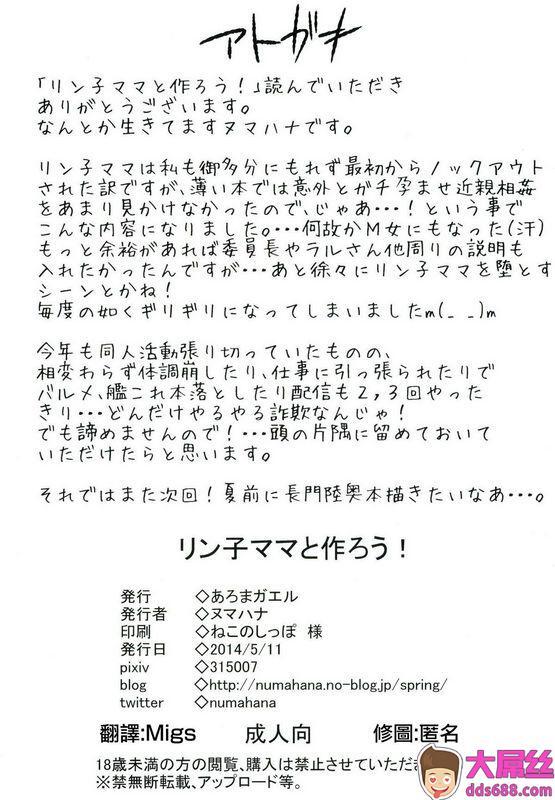 アトガキ
「リン子ママと作ろう!」読んでいただき
ありがとうございます。
なんとか生きてますヌマハナです。
リン子ママは私も御多分にもれず最初からノックアウト
された訳ですが、薄い本では意外とガチ孕ませ近親相姦
をあまり見かけなかったので、じゃあ…!という事で
こんな内容になりました。…何故かM女にもなった(汗)
もっと余裕があれば委員長やラルさん他周りの説明も
入れたかったんですが…あと徐々にリン子ママを堕とす
シーンとかね!
毎度の如くギリギリになってしまいましたm(_ _)m
今年も同人活動張り切っていたものの、
相変わらず体調崩したり、仕事に引っ張られたりで
バルメ、艦これ本落としたり配信も2,3回やった
きり…どんだけやるやる詐欺なんじゃ!
でも諦めませんので!…頭の片隅に留めておいて
いただけたらと思います。
それではまた次回!夏前に長門陸奥本描きたいなあ…。
リン子ママと作ろう!
発行 ◇あろまガエル
発行者 ◇ヌマハナ
印刷 ◇ねこのしっぽ 様
発行日 ◇2014/5/11
pixiv ◇315007
blog ◇http://numahana.no-blog.jp/spring/
twitter ◇numahana
翻譯:Migs 成人向 修圖:匿名
18歳未満の方の閲覧、購入は禁止させていただきま
※禁無断転載、アップロード等。
大屌丝
dds688.com